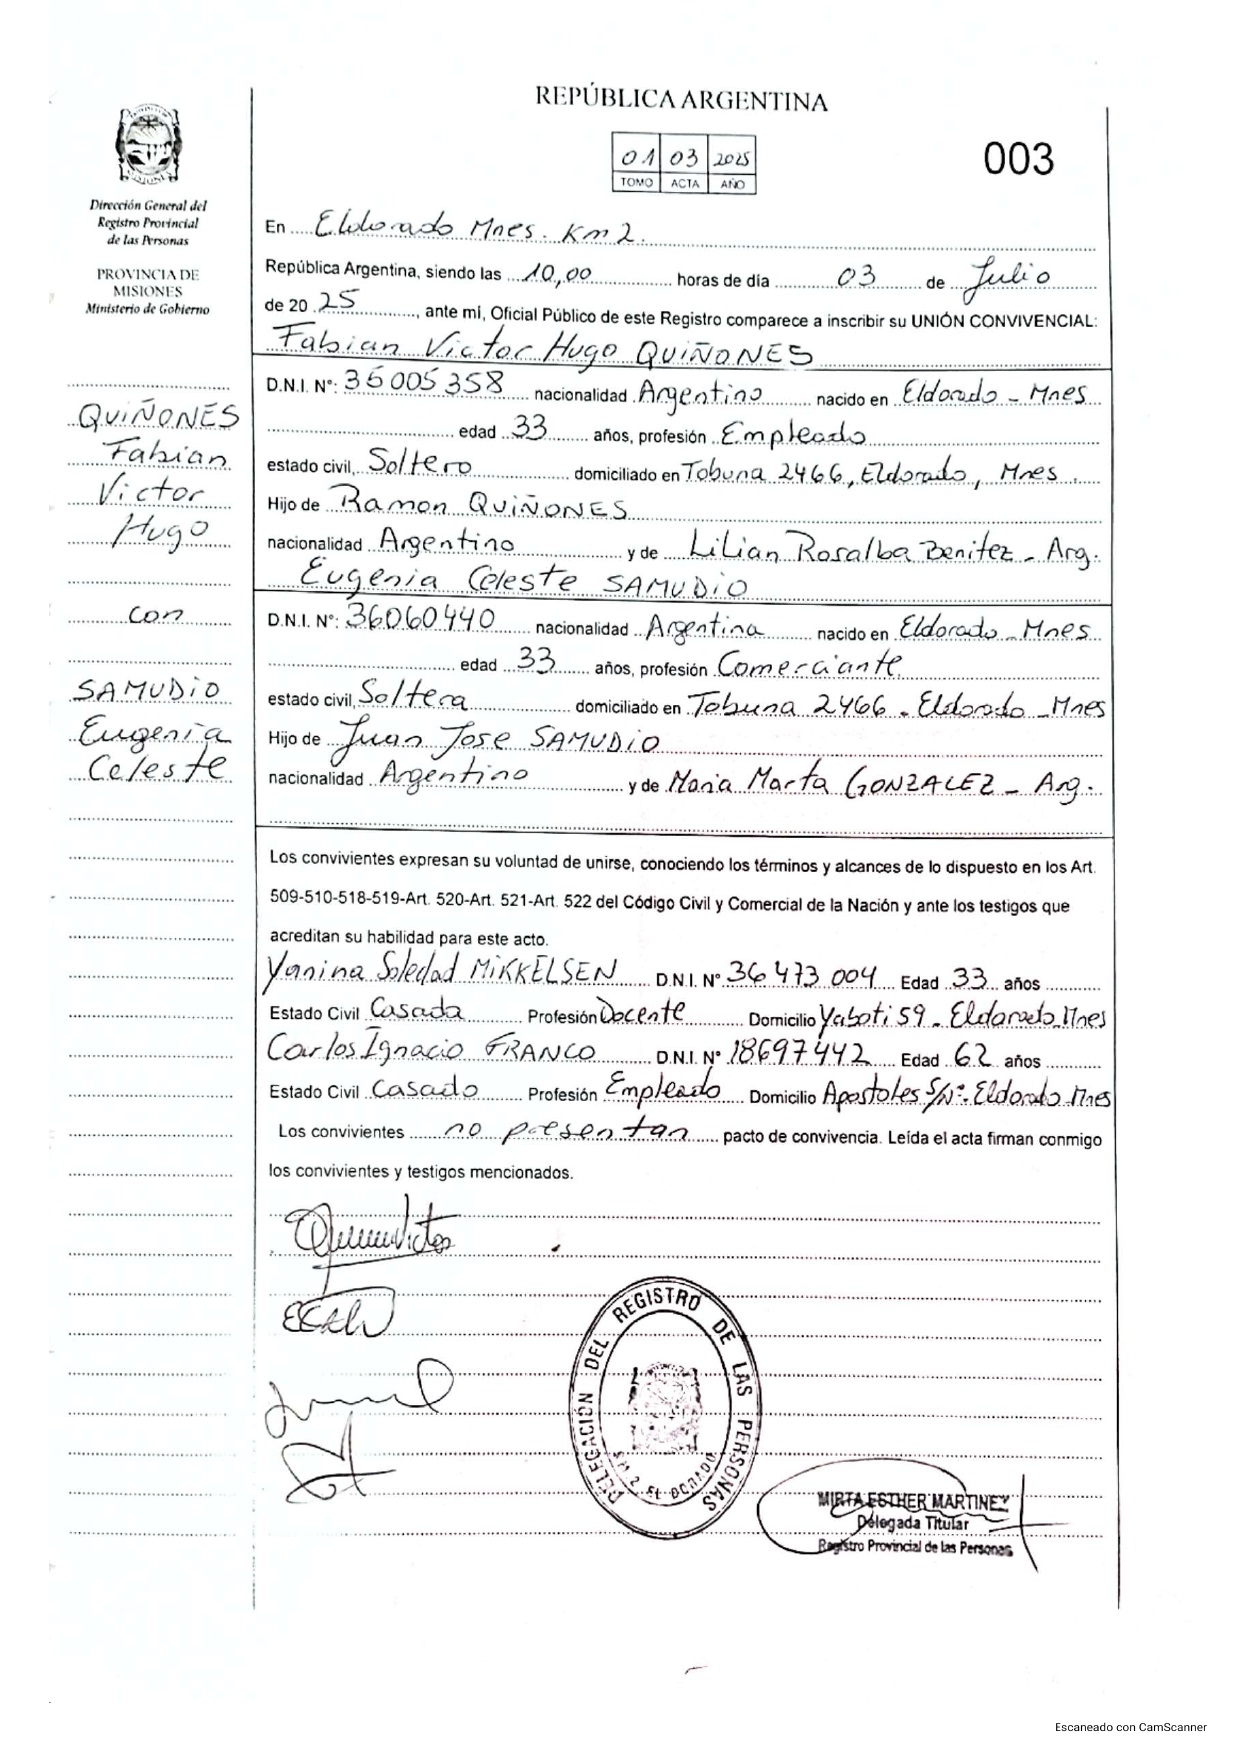 REPÚBLICA ARGENTINA
01 03 2025
TOMO ACTA AÑO
003
Dirección General del
Registro Provincial
de las Personas
PROVINCIA DE
MISIONES
Ministerio de Gobierno
QUIÑONES
Fabian
Victor
Hugo
con
SAMUDIO
Eugenia
Celeste
En Eldorado Mnes. Km 2.
República Argentina, siendo las 10,00 horas de día 03 de Julio
de 20 25, ante mí, Oficial Público de este Registro comparece a inscribir su UNIÓN CONVIVENCIAL:
Fabian Victor Hugo QUIÑONES
D.N.I. N°: 36005358 nacionalidad Argentino nacido en Eldorado - Mnes
edad 33 años, profesión Empleado
estado civil, Soltero domiciliado en Tobuna 2466, Eldorado, Mnes.
Hijo de Ramon QUIÑONES
nacionalidad Argentino y de Lilian Rosalba Benitez - Arg.
Eugenia Celeste SAMUDIO
D.N.I. N°: 36060440 nacionalidad Argentina nacido en Eldorado - Mnes
edad 33 años, profesión Comerciante
estado civil, Soltera domiciliado en Tobuna 2466 - Eldorado - Mnes
Hijo de Juan Jose SAMUDIO
nacionalidad Argentino y de Maria Marta GONZALEZ - Arg.
Los convivientes expresan su voluntad de unirse, conociendo los términos y alcances de lo dispuesto en los Art.
509-510-518-519-Art. 520-Art. 521-Art. 522 del Código Civil y Comercial de la Nación y ante los testigos que
acreditan su habilidad para este acto.
Yanina Soledad MIKKELSEN D.N.I. N° 36 473 004 Edad 33 años
Estado Civil Casada Profesión Docente Domicilio Yaboti 59 - Eldorado Mnes
Carlos Ignacio FRANCO D.N.I. N° 18697442 Edad 62 años
Estado Civil Casado Profesión Empleado Domicilio Apostoles S/N°. Eldorado Mnes
Los convivientes no presentan pacto de convivencia. Leída el acta firman conmigo
los convivientes y testigos mencionados.
DELEGACIÓN DEL REGISTRO DE LAS PERSONAS
KM 2 EL DORADO
MIRTA ESTHER MARTINEZ
Delegada Titular
Registro Provincial de las Personas
Escaneado con CamScanner